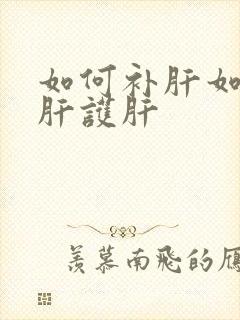 如何补肝如
肝護肝
羡慕南飛的雁